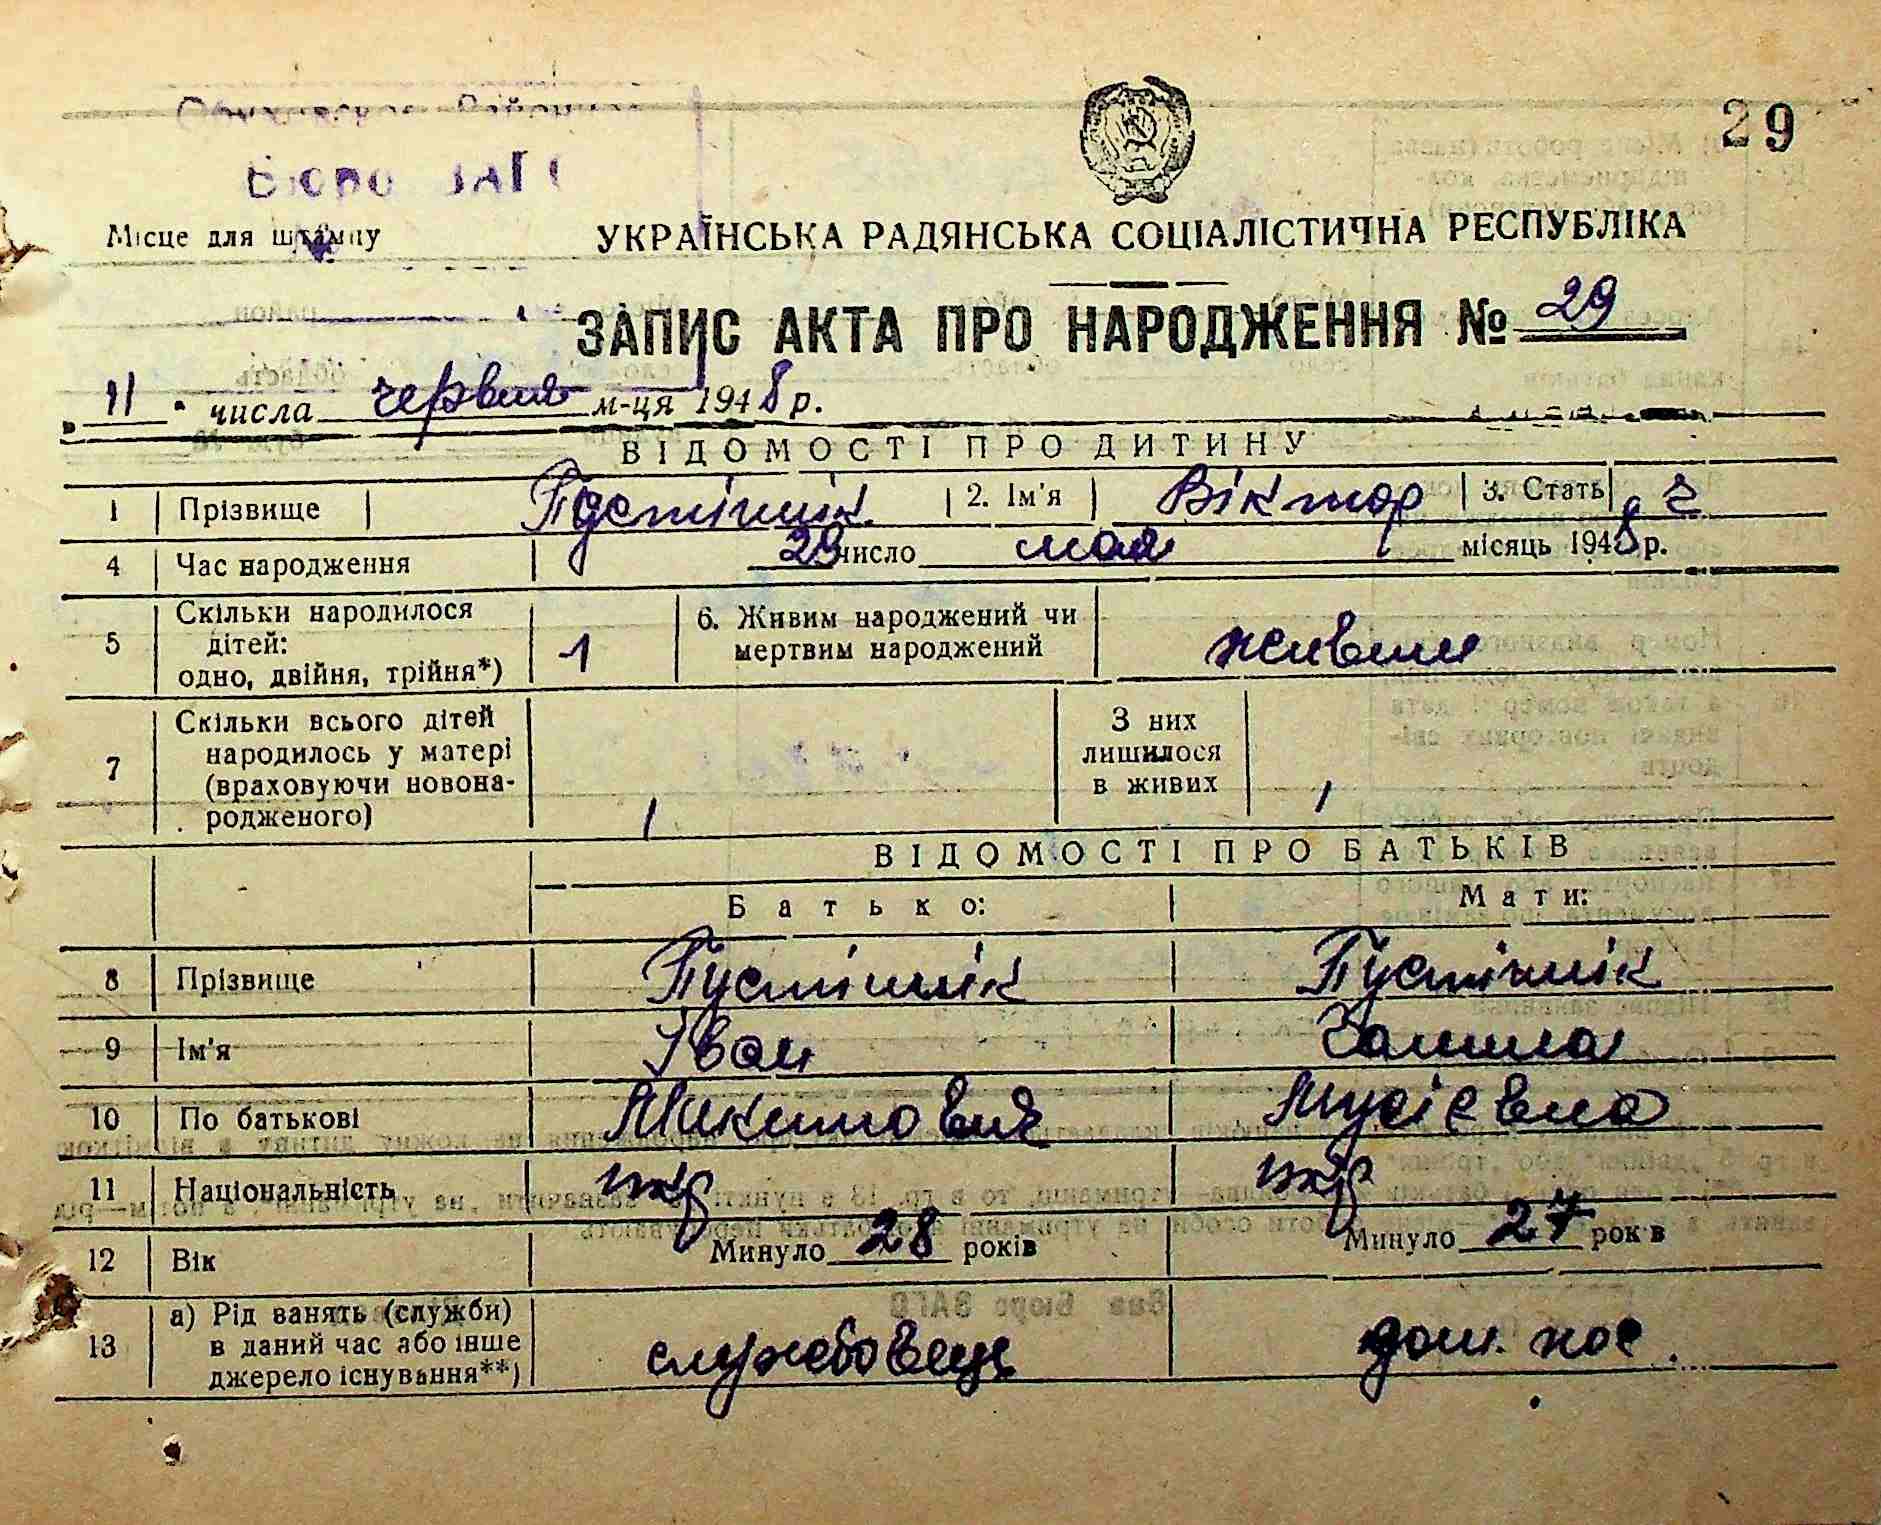 29
Бюро ЗАГС
Місце для штампу
УКРАЇНСЬКА РАДЯНСЬКА СОЦІАЛІСТИЧНА РЕСПУБЛІКА
ЗАПИС АКТА ПРО НАРОДЖЕННЯ № 29
„ 11 " числа червня м-ця 1948 р.
ВІДОМОСТІ ПРО ДИТИНУ
1 Прізвище Пустіннік 2. Ім'я Віктор 3. Стать ч
4 Час народження 29 число мая місяць 1948 р.
5 Скільки народилося дітей: одно, двійня, трійня*) 1 6. Живим народжений чи мертвим народжений живим
7 Скільки всього дітей народилось у матері (враховуючи новонародженого) 1 З них лишилося в живих 1
ВІДОМОСТІ ПРО БАТЬКІВ
Батько: Мати:
8 Прізвище Пустіннік Пустіннік
9 Ім'я Іван
10 По батькові Микитович Мусієвна
11 Національність укр укр
12 Вік Минуло 28 років Минуло 27 років
13 а) Рід занять (служби) в даний час або інше джерело існування**) службовець дом. хос.